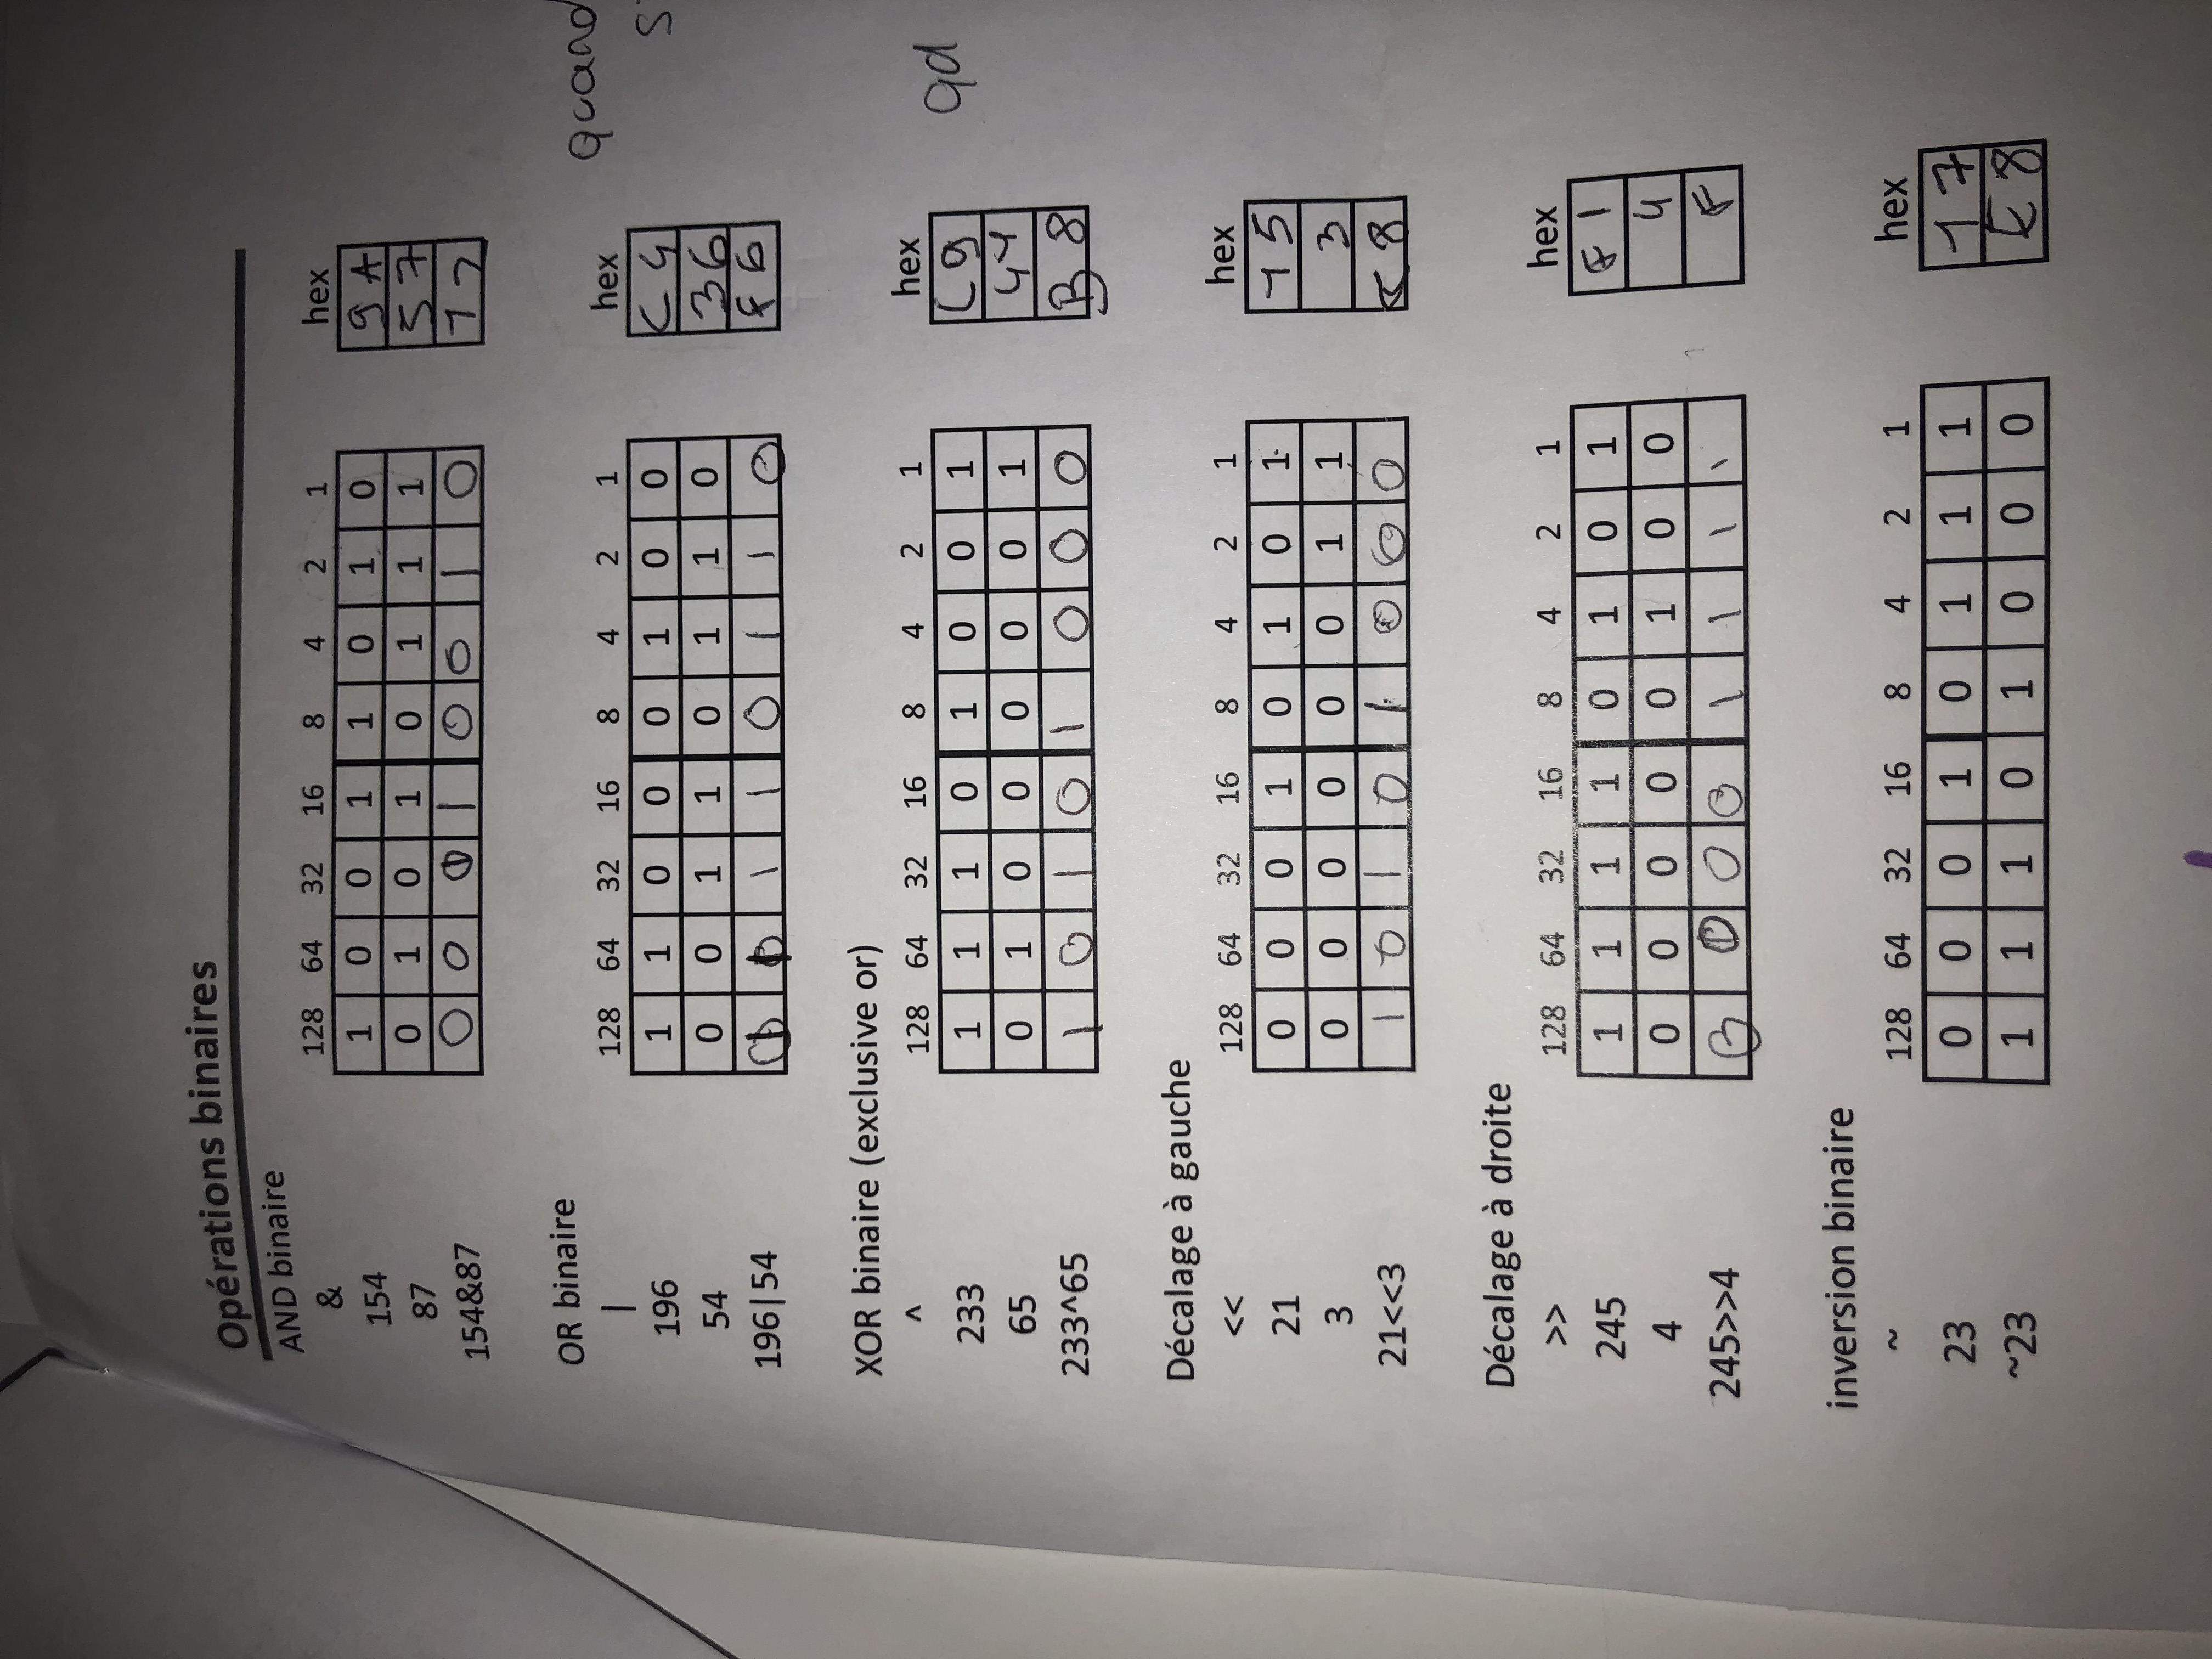 Opérations binaires
AND binaire
& 128 64 32 16 8 4 2 1 hex
154 1 0 0 1 1 0 1 0 9 A
87 0 1 0 1 0 1 1 1 5 7
154&87 0 0 0 1 0 0 1 0 1 2
OR binaire
quand
| 128 64 32 16 8 4 2 1 hex
196 1 1 0 0 0 1 0 0 C 4
54 0 0 1 1 0 1 1 0 3 6
196|54 1 1 1 1 0 1 1 0 F 6
XOR binaire (exclusive or)
^ 128 64 32 16 8 4 2 1 hex
qd
233 1 1 1 0 1 0 0 1 C 9
65 0 1 0 0 0 0 0 1 4 1
233^65 1 0 1 0 1 0 0 0 B 8
Décalage à gauche
<< 128 64 32 16 8 4 2 1 hex
21 0 0 0 1 0 1 0 1 1 5
3 0 0 0 0 0 0 1 1 3
21<<3 1 0 1 0 1 0 0 0 8
Décalage à droite
>> 128 64 32 16 8 4 2 1 hex
245 1 1 1 1 0 1 0 1 F 1
4 0 0 0 0 0 1 0 0 4
245>>4 0 0 0 0 1 1 1 1 F
inversion binaire
~ 128 64 32 16 8 4 2 1 hex
23 0 0 0 1 0 1 1 1 1 7
~23 1 1 1 0 1 0 0 0 E 8